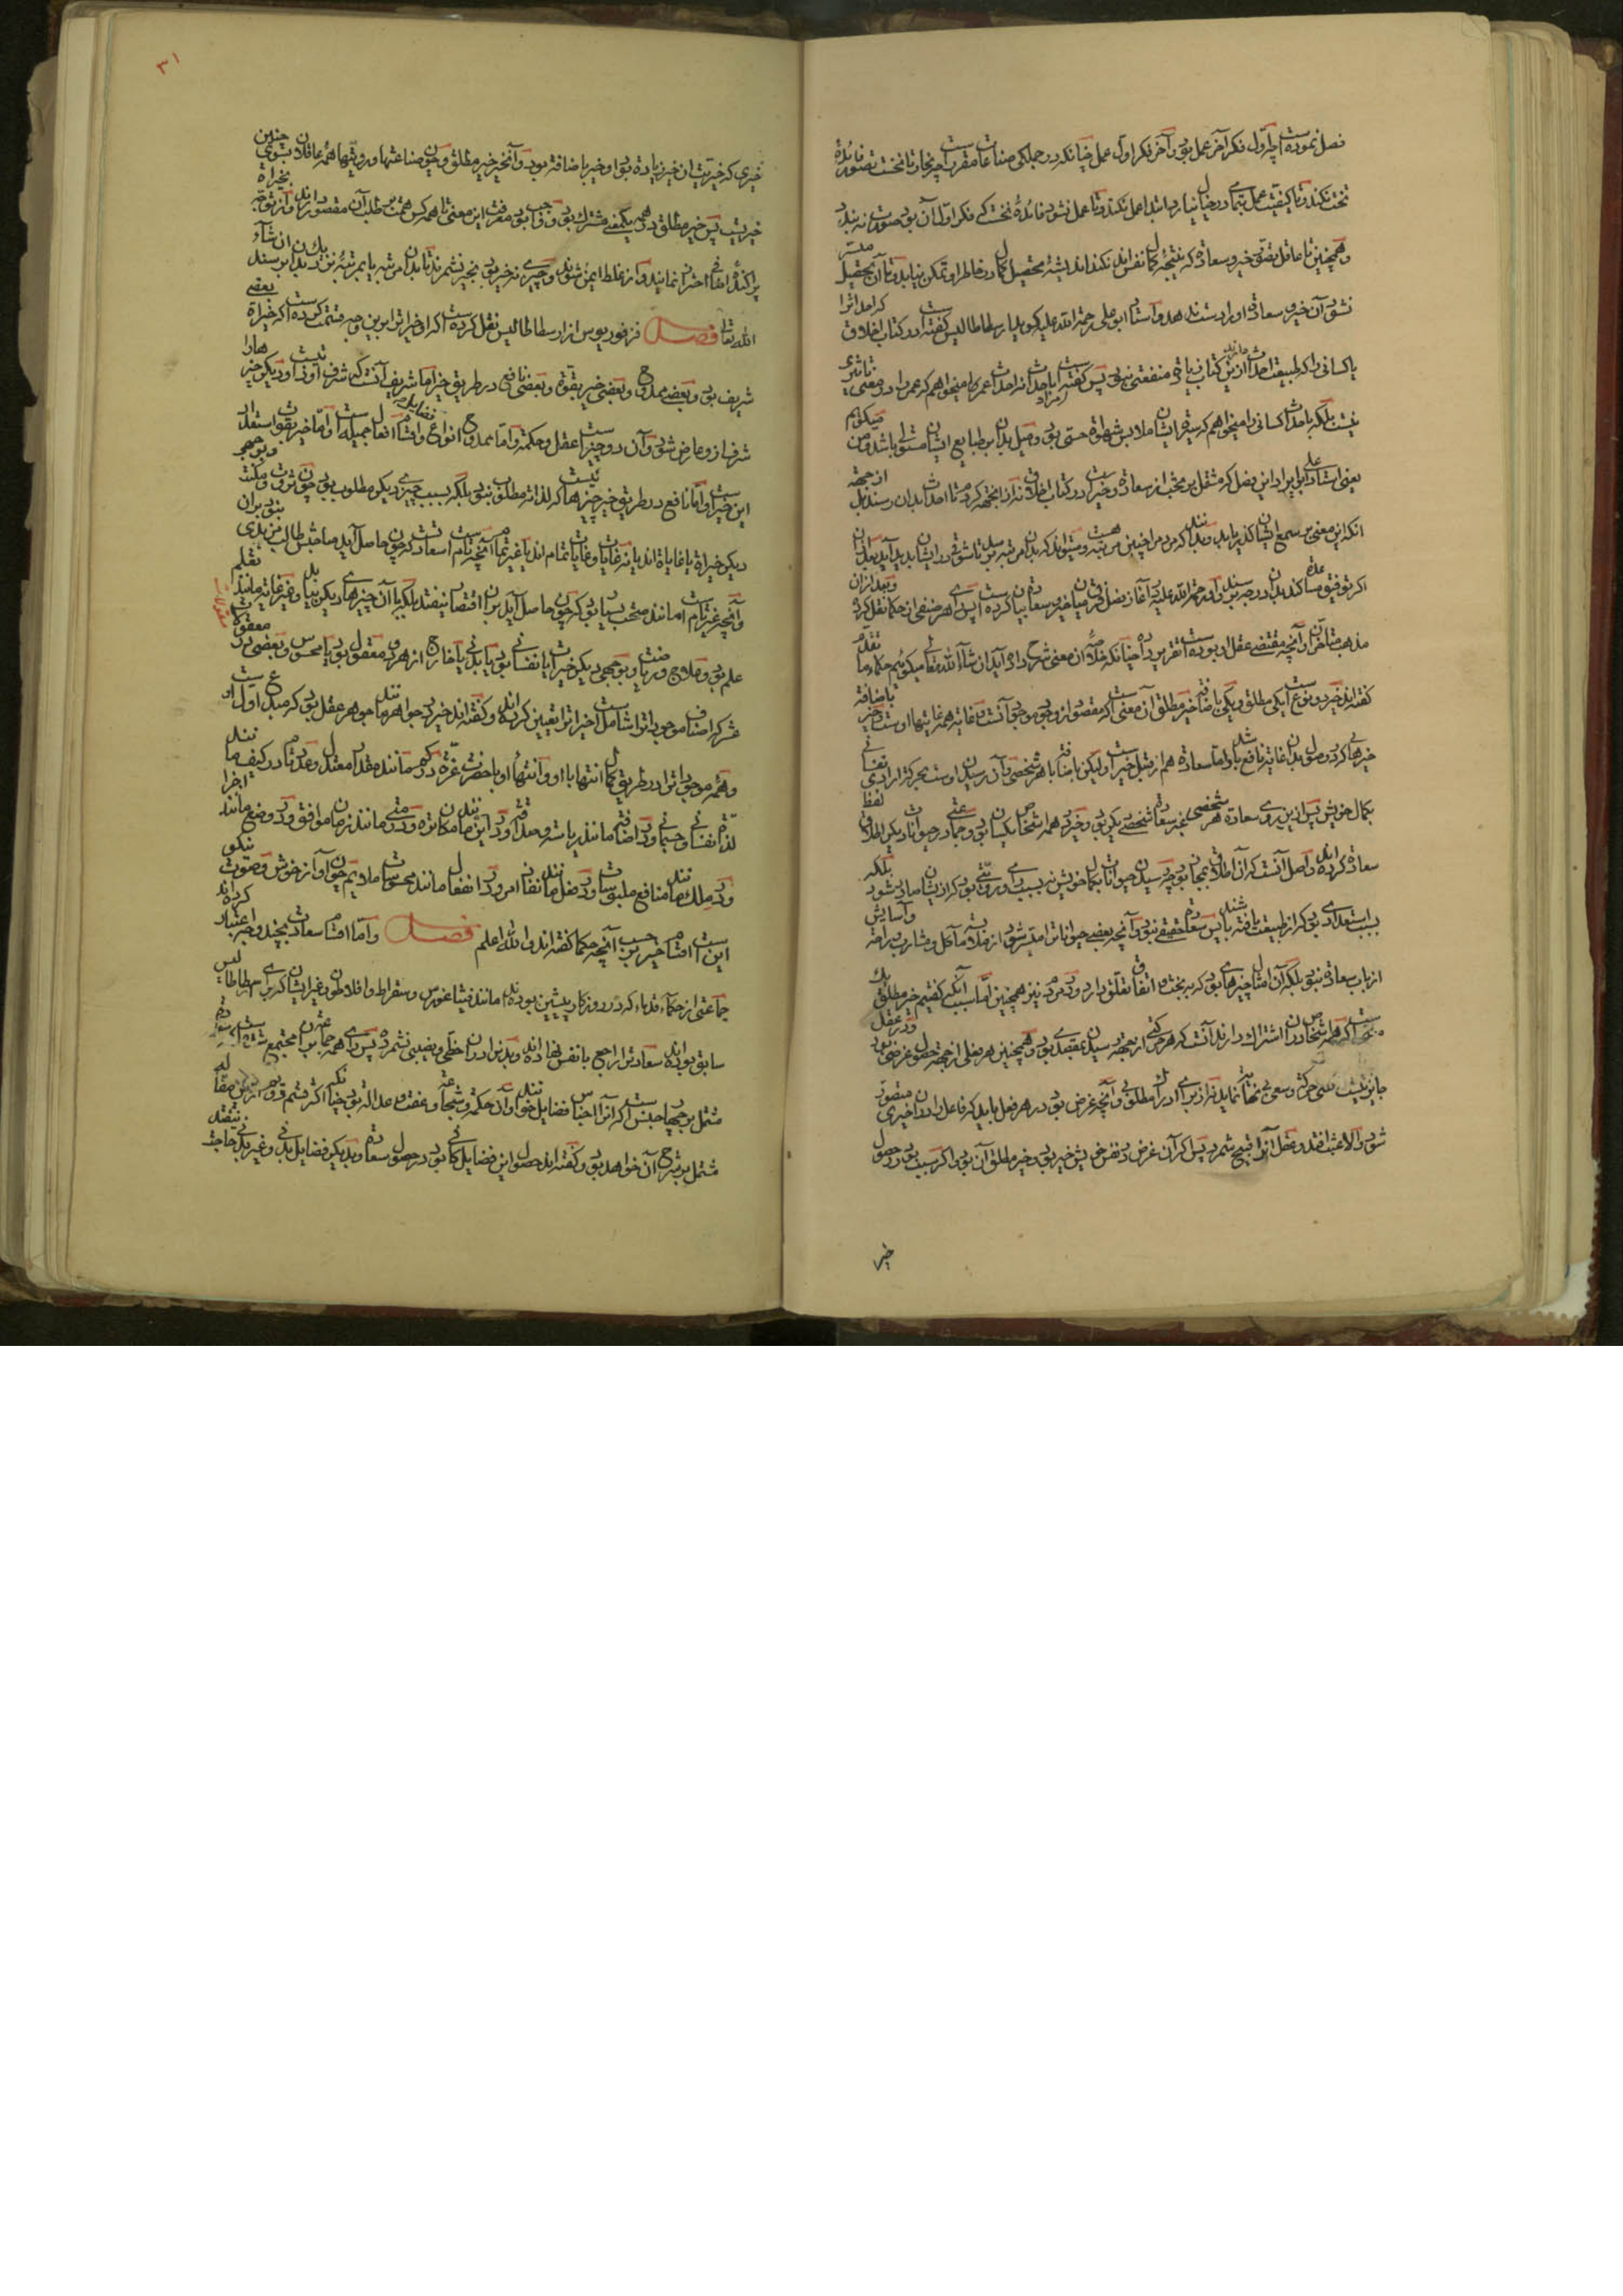 فصل نموده است چه اول فکر آخر عمل بود و آخر فکر اول عمل چنانکه در جملگی صناعات مقرر است چه نجار تا نخست تصور فائده
تخت نکند تا کیفیت عمل بتمامی در خیال نیارد ابتدا عمل نکند و تا عمل نشود فائدۀ تخت که فکر اول آن بود صورت نه بندد
و همچنین تا عاقل تصور خیر و سعادة که نتیجۀ کمال نفس اند نکند اندیشۀ تحصیل کمال در خاطر او تمکن نیابد و تا آن تحصیل میسر
نشود آن خیر و سعادة او را دست ندهد و استاد ابو علی رحمة الله علیه گوید ارسطاطالیس گفته است در کتاب اخلاق که احداث را
یا کسانی را که طبیعت احداث دارند ازین کتاب زیادة منفعتی نبود پس گفته است اینجا باحداث نه احداث عمر میخواهم که عمر را در معنی تاثیری
نیست بلکه باحداث کسانی را میخواهم که سیرة ایشان ملابس شهواة حسی بود و میل بدان بر طبایع ایشان مستولی باشد و من میگویم
یعنی استاد ابو علی ایراد این فصل که مشتمل بر بحث از سعادة و خیر است در کتاب اخلاق نه از آنجهة کردم تا احداث بدان رسند بل از جهة
آنکه این معنی بر سمع ایشان گذر یابد و بدانند که مردم را چنین مرتبۀ هست و میتواند که بدان مرتبه برسد تا شوقی در ایشان پدید آید بعد از آن
اگر توفیق مساعدة کند بدان درجه برسند و او رحمة الله علیه در آغاز فصل فرق میان خیر و سعادة بیان کرده است پس رای هر صنفی از حکما نقل کرده و بعد از آن
مذهب متاخران و آنچه مقتضی عقل او بوده است تقریر داده چنانکه خلاصۀ آن معنی شرح داده آید ان شاء الله تعالی میگوئیم حکماء متقدم
گفته اند خیر بر دو نوع است یکی مطلق و یکی باضافة خیر مطلق آن معنی است که مقصود از وجود موجودات آنست و غایة همه غایتها اوست و خیر باضافة
خیرهائی که در وصول بدان غایة نافع باشد و اما سعادة هم از قبیل خیر است ولیکن باضافة با هر شخصی و آن رسیدن اوست بحرکة ارادی نفسانی
بکمال خویش پس ازین روی سعادة هر شخصی غیر سعادة شخصی دیگر بود و خیر در همه اشخاص یکسان بود و جماعتی در حیوانات دیگر اطلاق لفظ
سعادة کرده اند و اصل آنست که آن اطلاق بمجاز بود چه رسیدن حیوانات بکمال خویش نه بسبب رای و رویتی بود که از ایشان صادر شود بلکه
بسبب استعدادی بود که از طبیعت یافته باشند پس سعادة حقیقی نبود و آنچه بعضی حیوانات را میسر شود از ملایمة مآکل و مشارب و راحة و آسایش
از باب سعادة نبود بلکه آن امثال چیزها بود که ببخت و اتفاق تعلق دارد و در مردم نیز همچنین اما سبب آنکه گفتیم خیر مطلق یک
معنی است که همه اشخاص در آن اشتراک دارند آنست که هر حرکتی از جهة رسیدن بمقصدی بود و همچنین هر فعلی از جهة حصول غرضی بود و در عقل
جایز نیست که کسی حرکة و سعی بی نهایة نماید نه از برای ادراک مطلوبی و آنچه غرض بود در هر فعل باید که فاعل را در آن خیری متصور
شود و الا عبث افتد و عقل آنرا قبیح شمرد پس اگر آن غرض در نفس خویش خیر بود خیر مطلق آن بود و اگر سبب بود در حصول
خیر
٣١
خیری که خیریت آن خیر زیادة بود او خیر باضافة بود و آن خیر خیر مطلق و چون صناعتها و رویتها همه عاقلان بسوی چنین
خیریست پس خیر مطلق در همه یک معنی مشترک بود و واجب بود معرفت این معنی تا همه کس همت بر طلب آن مقصور دارند و از توجه بخیراة
پراکندۀ اضافی احتراز نمایند و از غلط ایمن شوند و چیزی نه خیر بود بخیر نشمرند تا بدان مرتبه یا بمرتبۀ نزدیک بدان برسند ان شاء
الله تعالی فصل فرفوریوس از ارسطاطالیس نقل کرده است که او خیرات را برین وجه قسمت کرده است که خیراة بعضی
شریف بود و بعضی ممدوح و بعضی خیر بقوة و بعضی نافع در طریق خیر اما شریف آنست که شرف او ذاتیست و دیگر چیزها را
شرف ازو عارض شود و آن دو چیز است عقل و حکمة و اما ممدوح انواع فضایل و اقسام افعال جمیله است و اما خیر بقوة استعداد
این خیرات است و اما نافع در طریق خیر چیزهائیست که لذاته مطلوب نبود بلکه بسبب چیزی دیگر مطلوب بود چون ثروت و مکنت و بوجهی
دیگر خیراة یا غایاة اند یا نه غایات و غایات یا تمام اند یا غیر تمام آنچه تمام است سعادتست که چون حاصل آید صاحبش طالب مزیدی نبود بران
و آنچه غیر تمام است مانند صحت و یسار بود که چون حاصل آید بران اقتصار نیفتد بلکه با آن چیزهای دیگر بباید و غیر غایة مانند تعلم
علم بود و علاج و ریاضت و بوجهی دیگر خیرات یا نفسانی بود یا بدنی یا خارج از هر دو معقول بود یا محسوس و بعضی در معقولات
عشر که اصناف موجودات را شامل است خیرات را تعیین کرده اند و گفته اند خیر در جواهر مانند جوهر عقل بود که مبدع اول است
و همه موجودات را در طریق کمال انتها با او و انتهاء او با حضرت عزة و در کم مانند مقدار معتدل و عدد تام و در کیف مانند
لذات نفسانی و جسمانی و در اضافة مانند ریاسة و صداقة و در این مانند مکان نزه و در متی مانند زمان موافق و در وضع مانند
و در ملک مانند منافع ملبوسات و در فعل مانند نفاذ امر و در انفعال مانند محسوسات ملایم چون آواز خوش و صورت نیکو
این است اقسام خیر بر حسب آنچه حکما گفته اند و الله اعلم فصل و اما اقسام سعادت بچند وجه اعتبار کرده اند
جماعتی از حکماء قدماء که در روزگار پیشین بوده اند مانند فیثاغورس و سقراط و افلاطون و غیر ایشان که برای ارسطاطالیس
سابق بوده اند سعادت را راجع با نفس نهاده اند و بدن را در آن حظی و نصیبی نشمرده پس رای همه جماعة بر آن مجتمع شده است که سعادة
مشتمل بر چهار جنس است که آنرا اجناس فضایل خوانند و آن حکمة و شجاعة و عفت و عدالة بود چنانکه اکثر قسم دوم ازین مقاله
مشتمل بر شرح آن خواهد بود و گفته اند حصول این فضایل کافی بود در حصول سعادة و بدیگر فضایل بدنی و غیر بدنی حاجة نیفتد